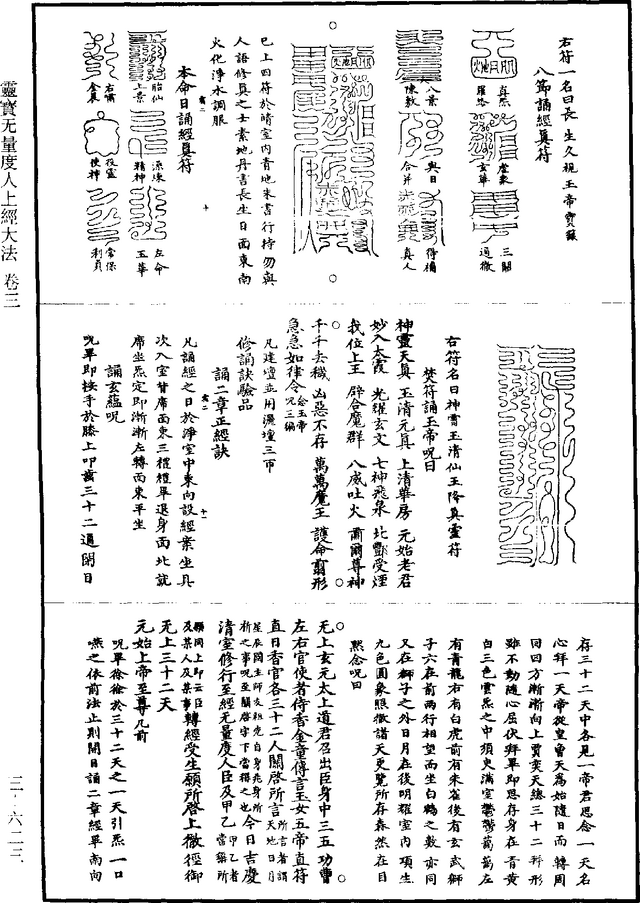 右符一名曰長生久視玉帝寶籙
八節誦經真符
真炁
羅絡
虛象
玄華
三關
通徹
八景
陳敷
與日
合并
得補
真人
已上四符於晴室內青地朱書行持勿與
人語修真之士素地丹書長生日西東南
火化淨水調服
本命日誦經真符
胎仙
上景
添凍
精神
左命
玉華
右嘯
金晨
役靈
使神
常保
利貞
右符名曰神霄玉清仙王降真靈符
焚符誦玉帝呪曰
神靈天真 玉清元真 上清華房 元始老君
妙入太霞 光耀玄文 七神飛泉 北酆受煙
我位上王 辟合魔群 八威吐火 爾尊神
千千去穢 凶惡不存 萬萬魔王 護命翦形
急急如律令念玉帝呪三徧
凡建壇並用灑壇三帀
修誦訣驗品
誦二章正經訣
凡誦經之日於淨室中東向設經案坐具
次入室背席面東三禮禮畢退身面北就
席坐炁定即漸漸左轉面東平坐
誦玄蘊呪
呪畢即按手於膝上叩齒三十二通閉目
存三十二天中各見一帝君思念一天名
心拜一天帝從皇曾天為始隨日而轉周
回四方漸漸向上賈奕天總三十二拜形
雖不動隨心屈伏拜畢即思存身在青黃
白三色雲炁之中須臾滿室鬱鬱藹藹左
有青龍右有白虎前有朱雀後有玄武獅
子六在前兩行相望而坐白鶴之數亦同
又在獅子之外日月在後明耀室內項生
九色圓象照徹諸天更覽所存森然在目
黙念呪曰
无上玄元太上道君召出臣身中三五功曹
左右官使者侍香金童傳言玉女五帝直符
直日香官各三十二人關啓所言所言者謂天地日月
星辰國主師友祖先自身先身所祈之事呪至關啓字下當稱之也今日吉慶
清室修行至經无量度人臣及甲乙甲乙者當籙所
轉經受生願所啓上徹徑御
无上三十二天
元始上帝至尊几前
呪畢徐徐於三十二天之一天引炁一口
嚥之依前法止則開目誦二章經畢南向
靈寶无量度人上經大法 卷三
三〇·六二三